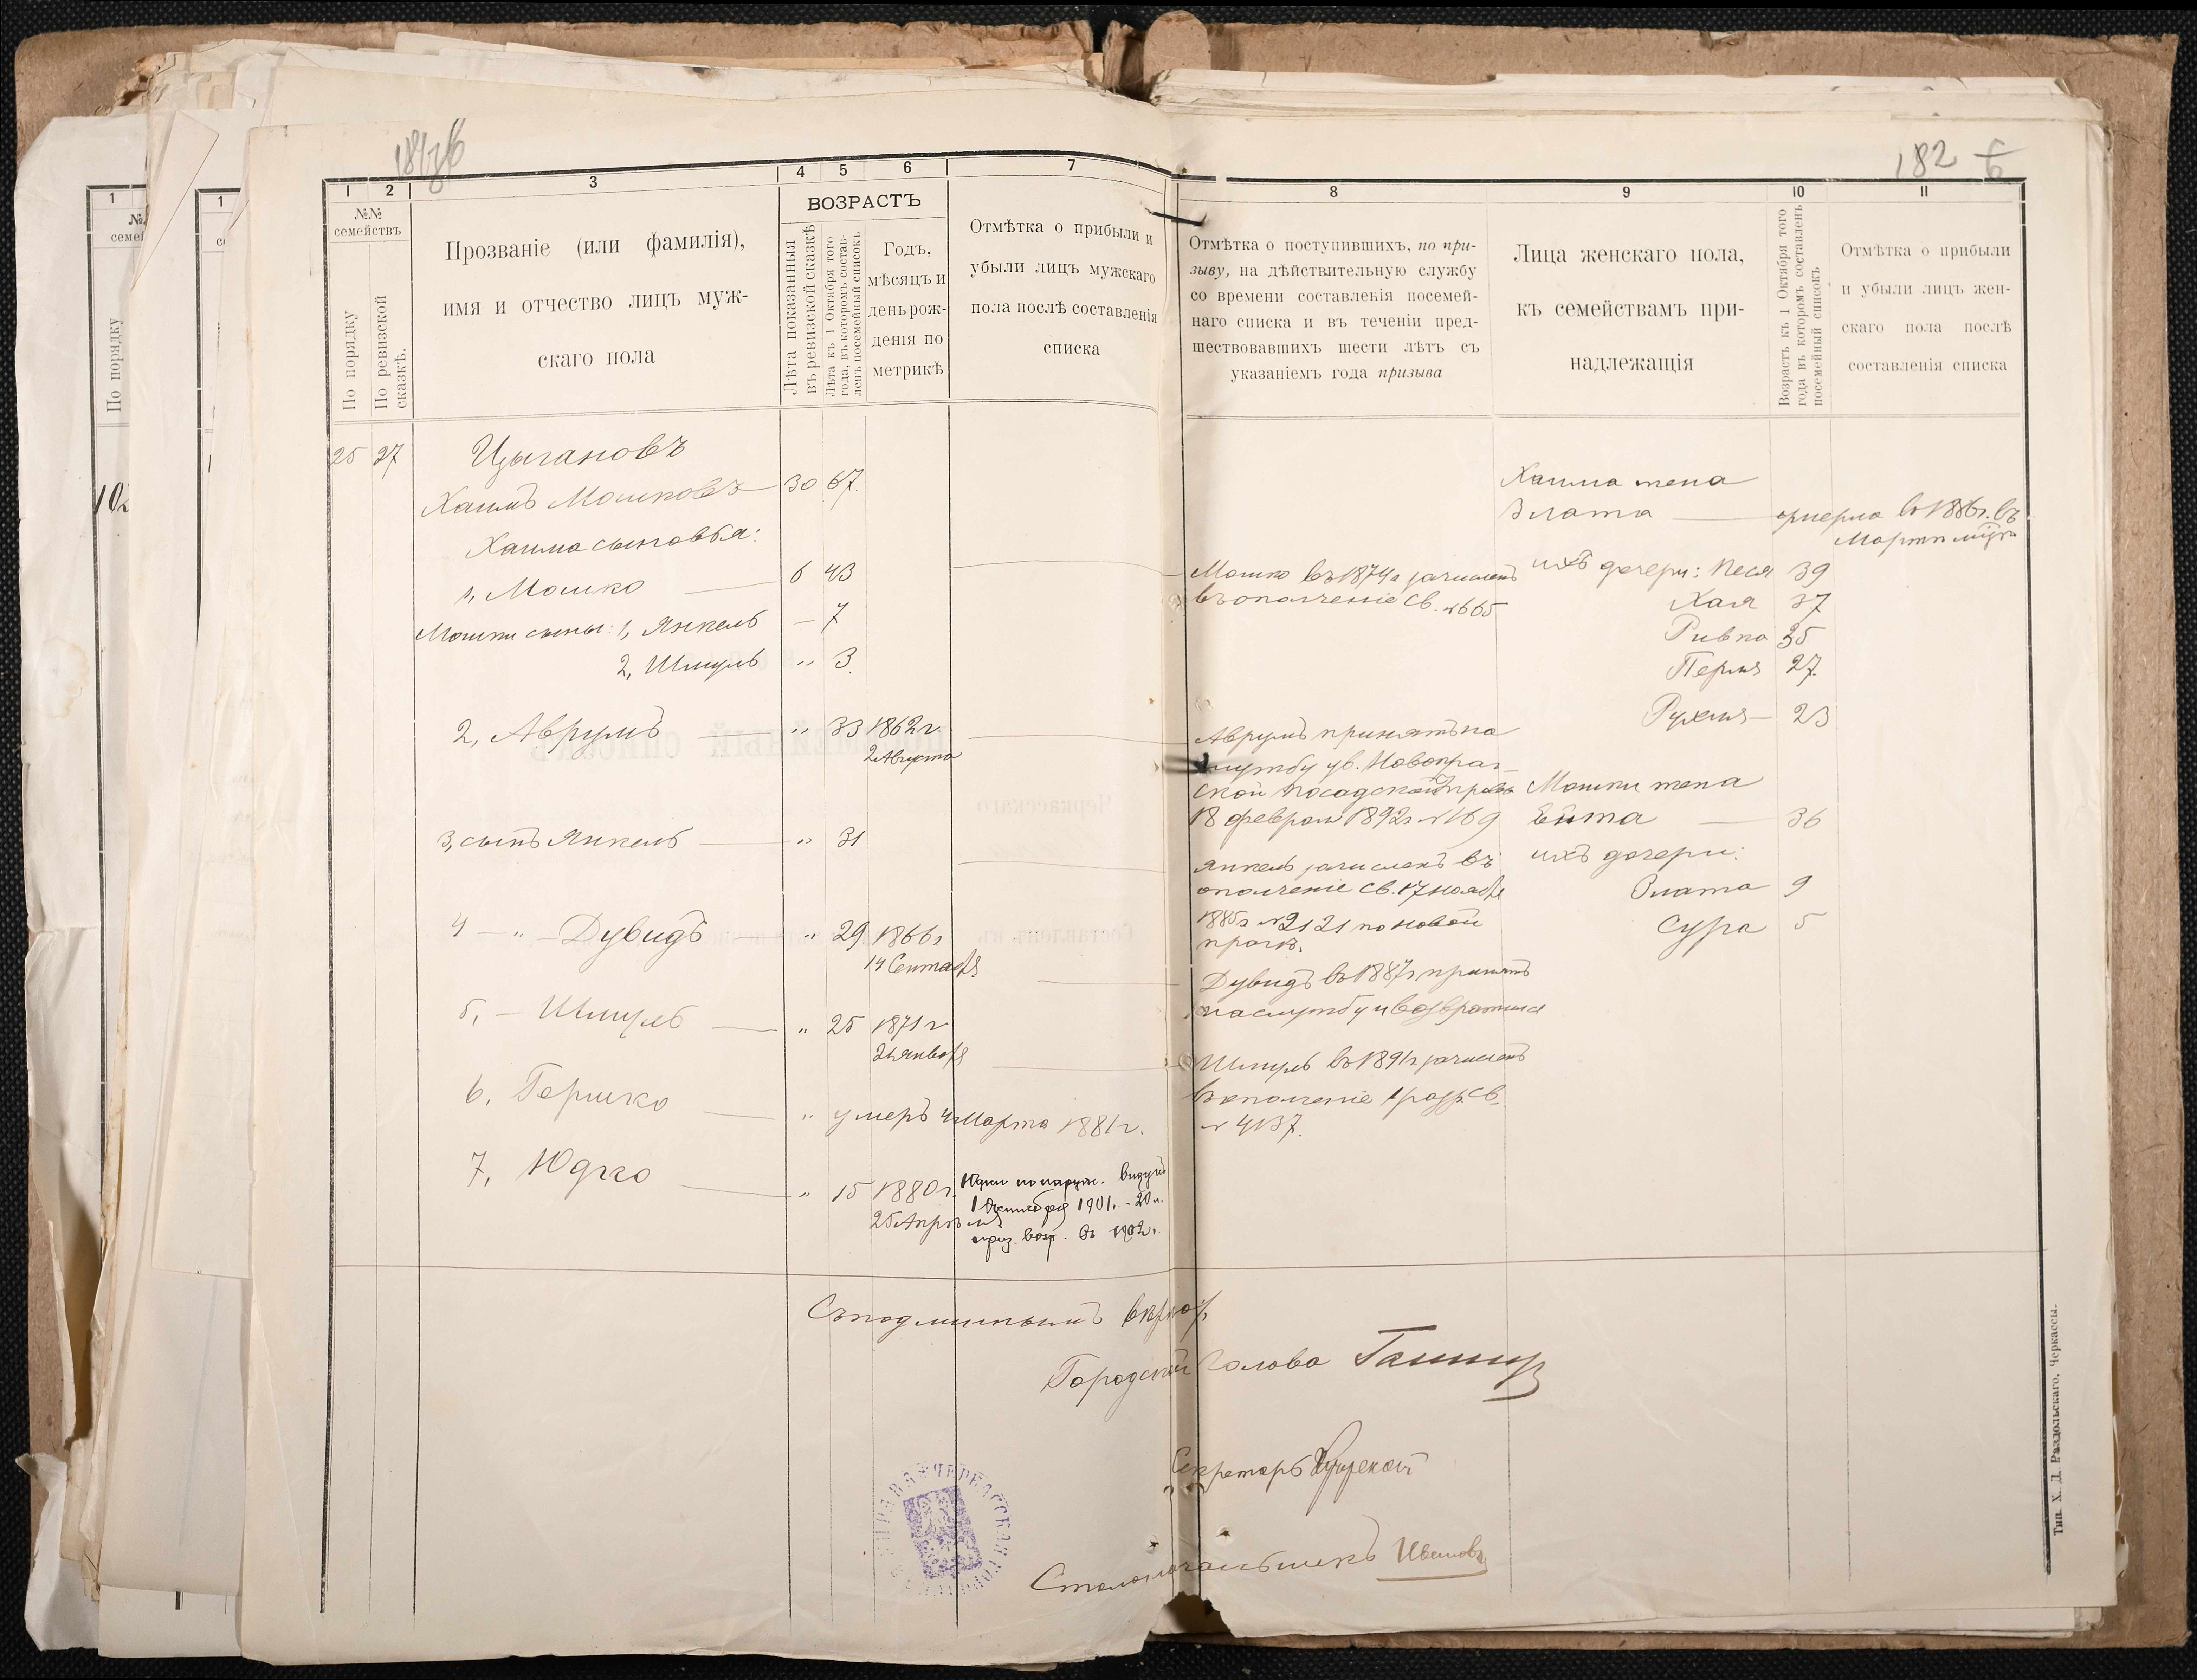 182
182
1
2
3
4
5
6
7
№№
семействъ
По порядку
По ревизской
сказкѣ.
Прозваніе (или фамилія),
имя и отчество лицъ муж-
скаго пола
ВОЗРАСТЪ
Лѣта показанныя
въ ревизской сказкѣ
Лѣта къ 1 Октября того
года, въ которомъ состав-
ленъ посемейный списокъ.
Годъ,
мѣсяцъ и
день рож-
денія по
метрикѣ
Отмѣтка о прибыли и
убыли лицъ мужскаго
пола послѣ составленія
списка
8
9
10
11
Отмѣтка о поступившихъ, по при-
зыву, на дѣйствительную службу
со времени составленія посемей-
наго списка и въ теченіи пред-
шествовавшихъ шести лѣтъ съ
указаніемъ года призыва
Лица женскаго пола,
къ семействамъ при-
надлежащія
Возрастъ къ 1 Октября того
года въ которомъ составленъ
посемейный списокъ
Отмѣтка о прибыли
и убыли лицъ жен-
скаго пола послѣ
составленія списка
25 27 Цыгановъ
Хаимъ Мошковъ 30 67.
Хаима сыновья:
1, Мошко 6 43
Мошки сыны: 1, Янкель — 7
2, Шмуль „ 3.
2, Аврумъ „ 33 1862 г.
2 Августа
3, сынъ Янкель „ 31
4 — „ — Дувидъ „ 29 1866 г
14 Сентября
5, — Шмуль „ 25 1871 г
января
6, Гершко „ умеръ 4 Марта 1881 г.
7, Юдко „ 15 1880 г.
25 Апрѣля
Юдки по наруж. виду
1901 г. - 20 л.
приз. возр. въ 1902 г.
Мошко въ 1874 г зачисленъ
въ ополченіе св. № 665
Аврумъ принятъ на
службу ув. Новопраг-
ской посадской
18 февраля 1892 г № 169
Янкель зачисленъ въ
ополченіе св. 17 ноября
1885 г № 2121 по Новой
праги.
Дувидъ въ 1887 г принятъ
на службу и возвратился
Шмуль въ 1891 г зачисленъ
въ ополченіе 1 разр. св.
№ 4137.
Хаима жена
Злата — умерла въ 1886 г. въ
Мартѣ
ихъ дочери: Песя 39
Хая 37
Ривка 35
Перля 27.
Рухля — 23
Мошки жена
Ейта — 36
ихъ дочери:
Злата 9
Сура 5
Съ подлиннымъ вѣрно:
Городской Голова
Секретарь
Столоначальникъ Ивановъ
Тип. Х. Д. Раздольскаго, Черкассы.
1
№
семей
По порядку
102
1